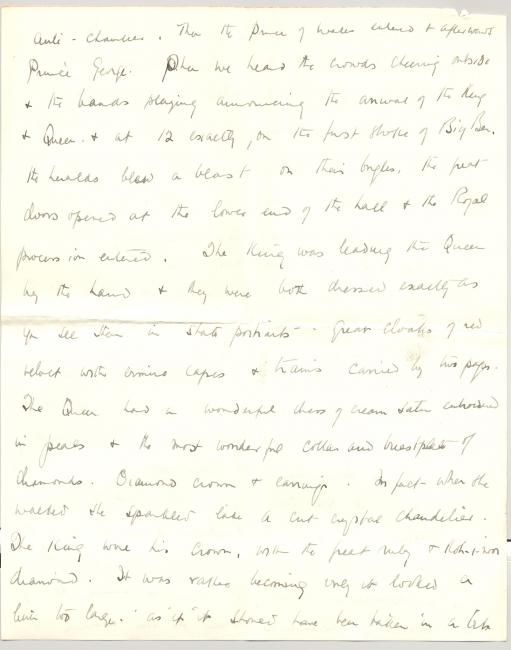 anti-chamber. Then the Prince of Wales entered & afterwards
Prince George. Then we heard the crowds cheering outside
& the bands playing announcing the arrival of the King
& Queen. & at 12 exactly, on the first stroke of Big Ben.
the heralds blew a blast on their bugles, the great
doors opened at the lower end of the hall & the Royal
procession entered. The King was leading the Queen
by the hand & they were both dressed exactly as
you see them in state portraits - Great cloaks of red
velvet with ermine capes & trains carried by two pages.
The Queen had a wonderful dress of cream satin embroidered
in pearls & the most wonderful collar and breastplate of
diamonds. Diamond crown & earrings. In fact when she
walked she sparkled like a cut crystal chandelier.
The King wore his crown, with the great ruby & Koh-i-noor
diamond. It was rather becoming only it looked a
little too large. as if it should have been taken in a